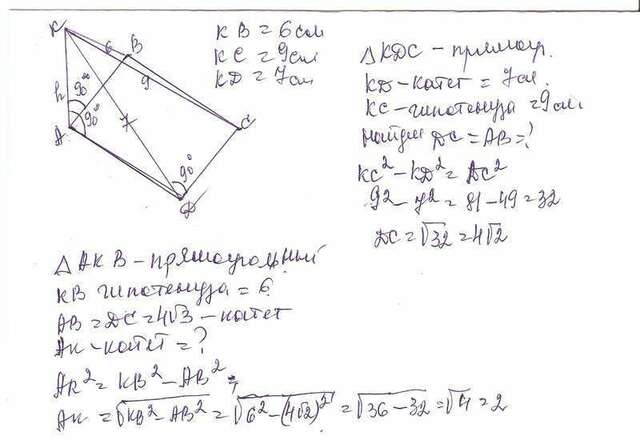 K
6
B
9
h
90°
90°
7
A
C
90°
D
KB = 6 см
KC = 9 см
KD = 7 см
△KDC - прямоуг.
KD - катет = 7 см.
KC - гипотенуза = 9 см.
найдем DC = AB = ?
KC² - KD² = DC²
9² - 7² = 81 - 49 = 32
DC = √32 = 4√2
△AKB - прямоугольный
KB гипотенуза = 6
AB = DC = 4√3 - катет
AK - катет = ?
AK² = KB² - AB² =
AK = √KB² - AB² = √6² - (4√2)² = √36 - 32 = √4 = 2